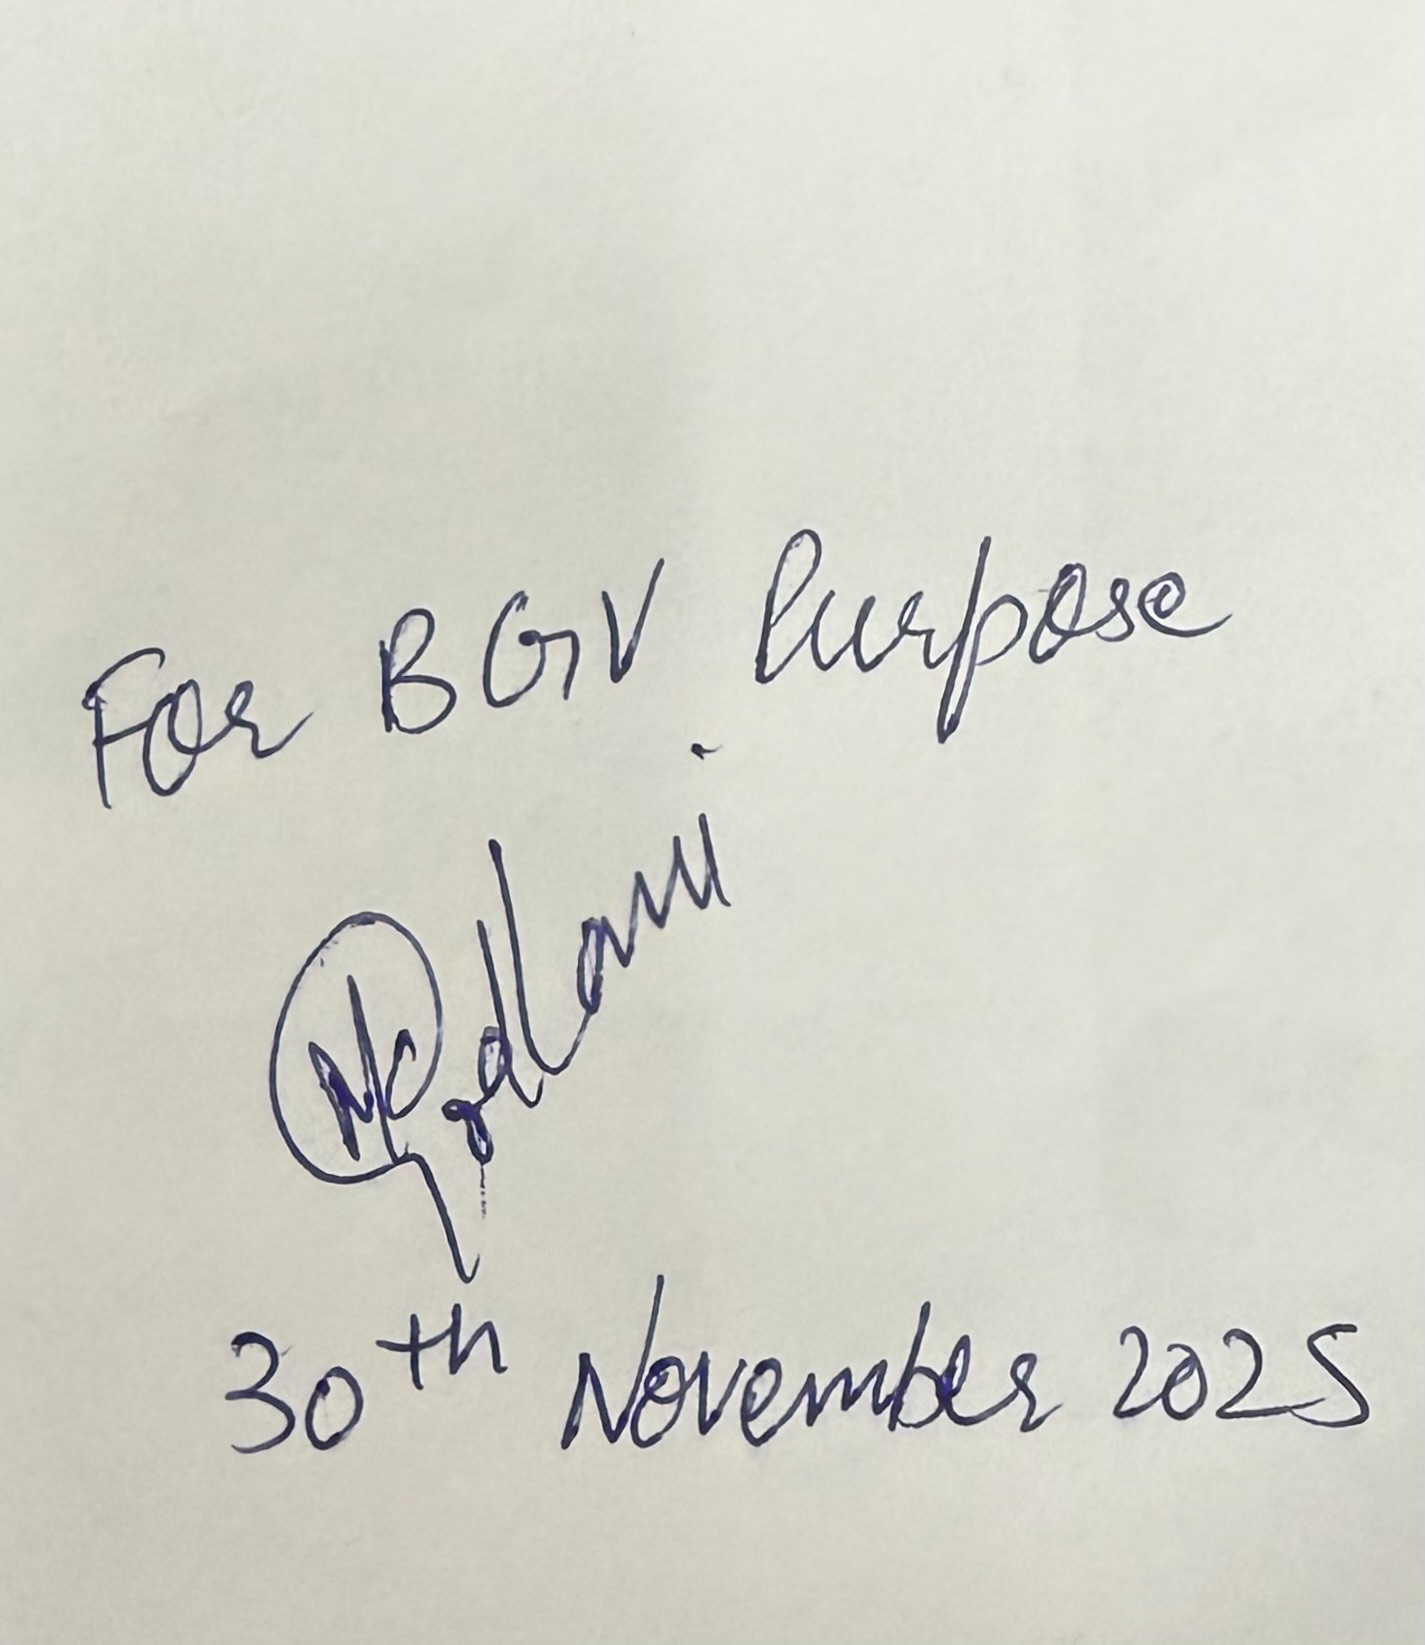 For BGV Purpose
30th November 2025